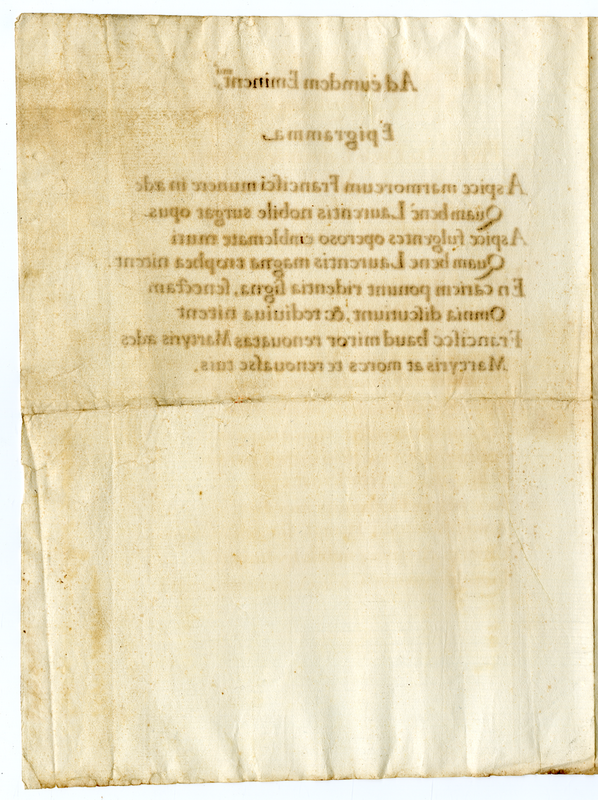 Ad eumdem Eminent.mũ
Epigramma
Aspice marmoreum Francisci munere in æde
Quàm benè Laurentis nobile surgat opus
Aspice fulgentes operoso emblemate muri
Quam bene Laurentis magna trophea nitent.
En cariem ponunt ridentia signa, senectam
Omnia discutiunt, & rediuiua nitent
Francisce haud miror renouatas Martyris ædes
Martyris at mores te renouasse tuis.